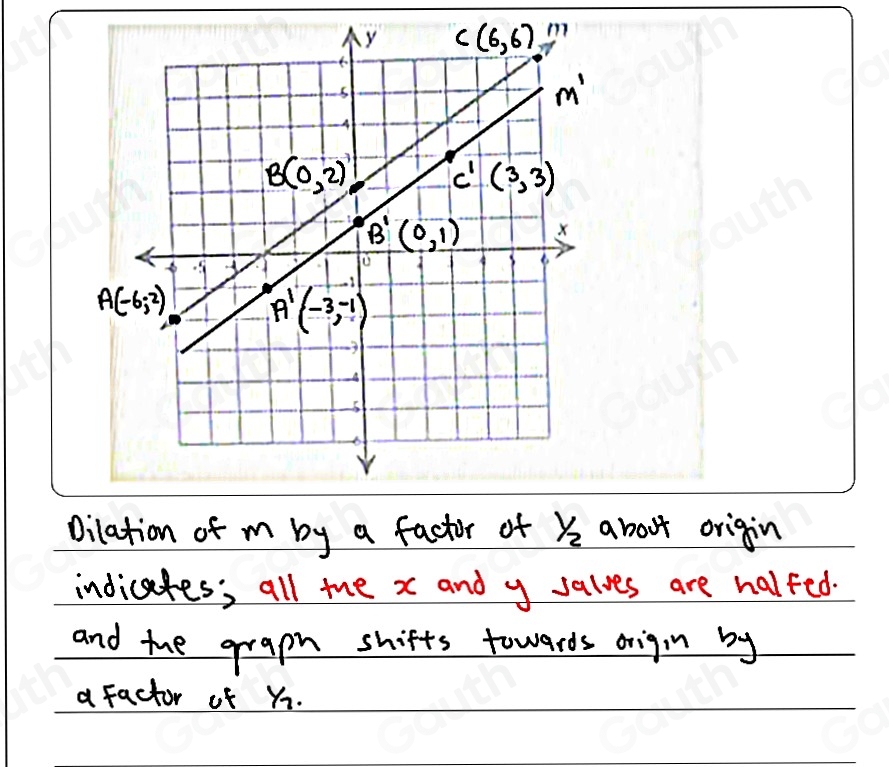 y
C(6,6) m
6
5
m'
4
B(0,2)
C' (3,3)
B' (0,1)
x
A(-6;2)
A' (-3,-1)
Dilation of m by a factor of ½ about origin
indicates; all the x and y values are halfed.
and the graph shifts towards origin by
a factor of ½.
Gauth